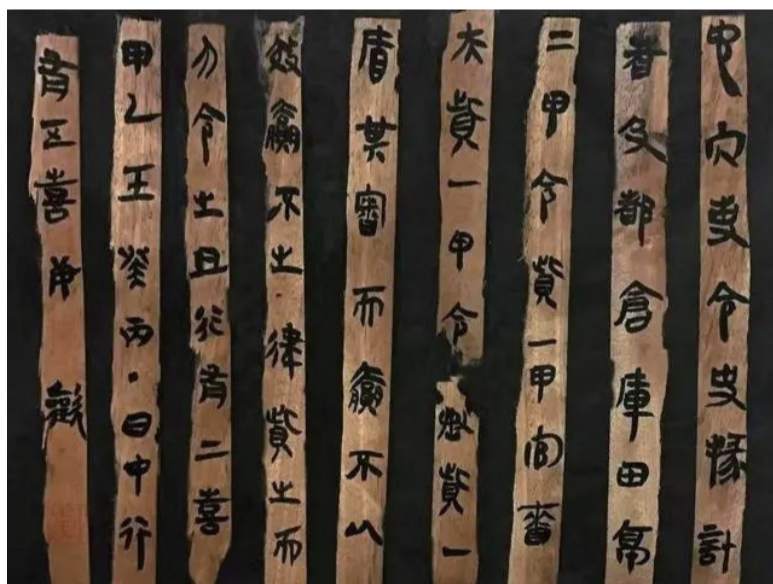 它冗吏令史掾計
者及都倉庫田亭
二甲令貲一甲官嗇
夫貲一甲令丞貲一
盾其審而贏不
贏不之·律貲之而
勿令之且行有二喜
甲乙壬癸丙·日中行
有五喜